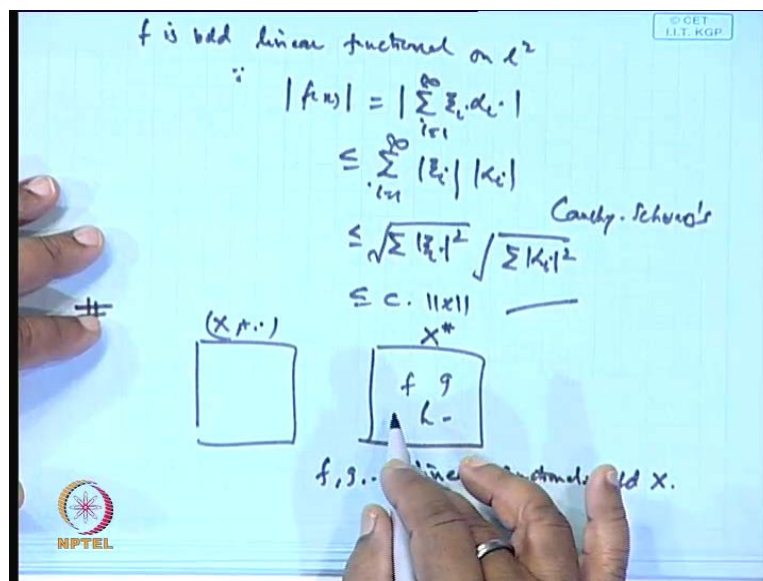 © CET
I.I.T. KGP
f is bdd linear functional on l²
∵ |f(x)| = |∑_{i=1}^{∞} ξ_i . α_i|
≤ ∑_{i=1}^{∞} |ξ_i| |α_i|
Cauchy-Schwarz's
≤ √(∑ |ξ_i|²) √(∑ |α_i|²)
≤ c. ||x||
(X, +, ·) X*
f g
h -
f, g.. X.
NPTEL